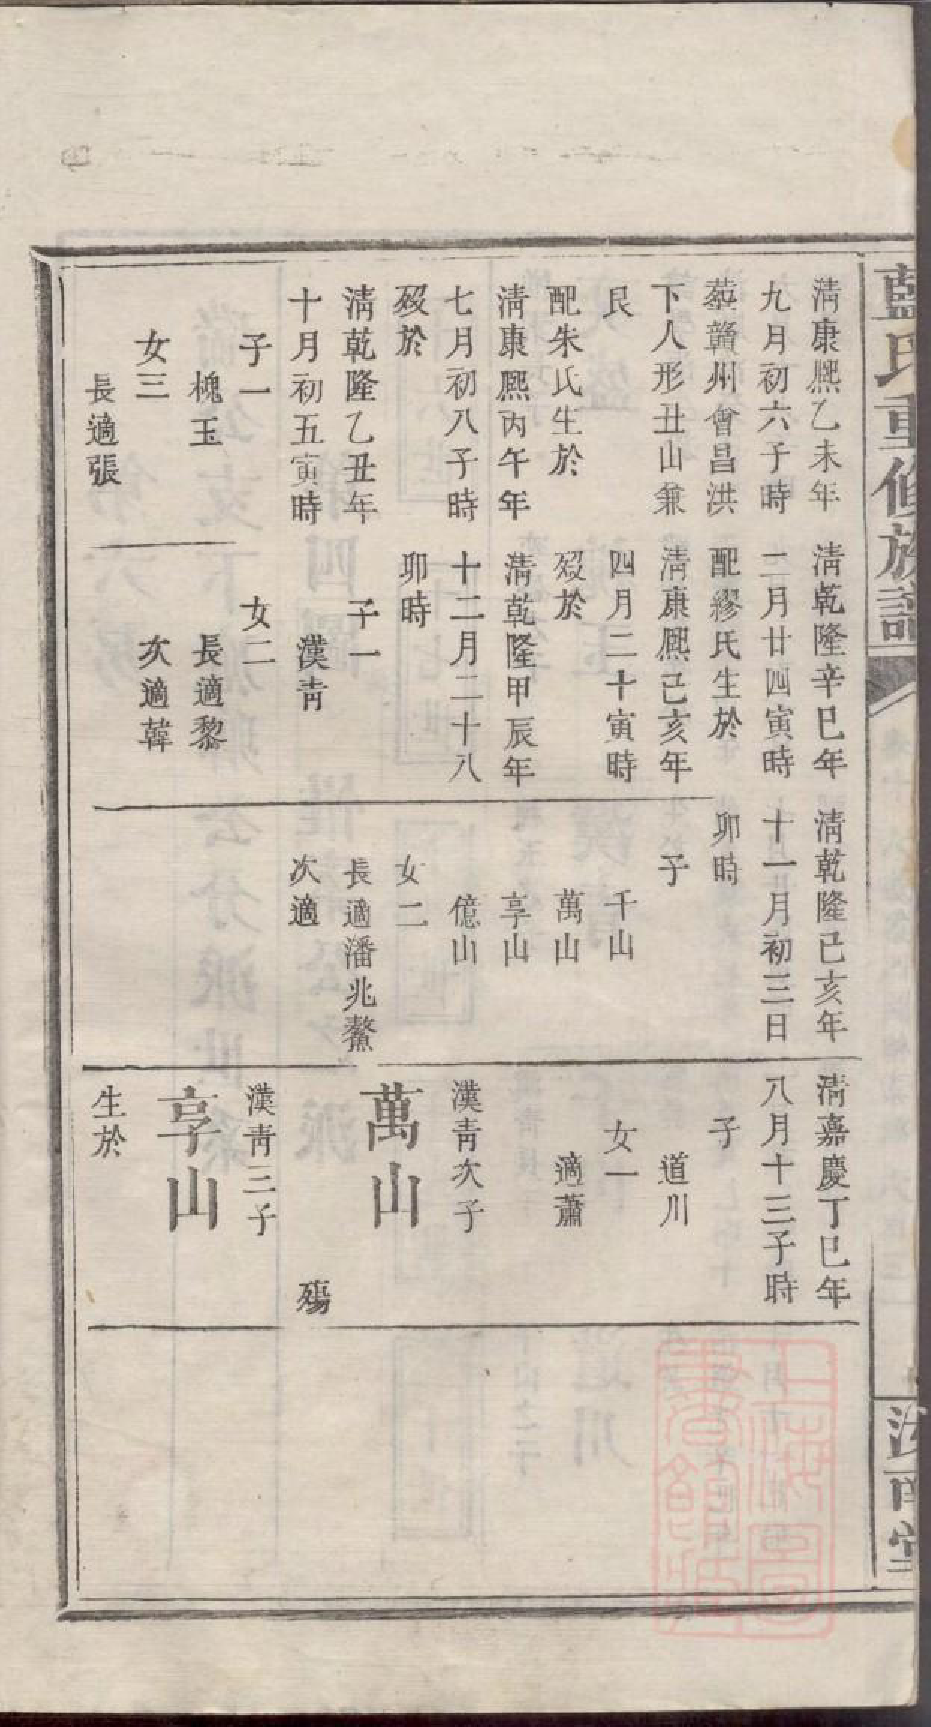 藍氏重修族譜
清康熈乙未年
九月初六子時
葬贛州會昌洪
下人形丑山兼
艮
配朱氏生於
清康熈丙午年
七月初八子時
歿於
清乾隆乙丑年
十月初五寅時
子一
槐玉
女三
長適張
清乾隆辛巳年
二月廿四寅時
配繆氏生於
清康熈己亥年
四月二十寅時
歿於
清乾隆甲辰年
十二月二十八
卯時
子一
漢青
女二
長適黎
次適韓
清乾隆己亥年
十一月初三日
卯時
子
千山
萬山
享山
億山
女二
長適潘兆鰲
次適
清嘉慶丁巳年
八月十三子時
子
道川
女一
適蕭
漢青次子
萬山
殤
漢青三子
享山
生於
汝南堂